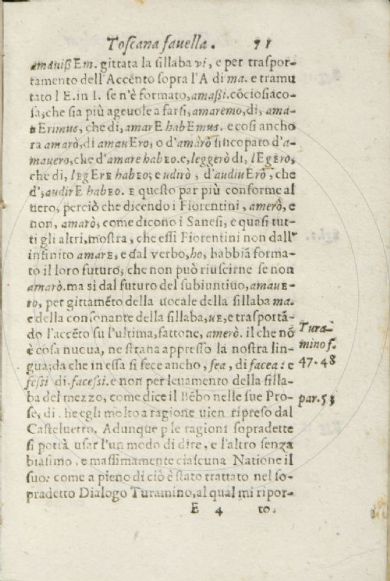 Toscana fauella. 71
amauißEm. gittata la sillaba vi, e per traspor-
tamento dell'Accento sopra l'A di ma. e tramu
tato l E. in I. se n'è formato, amaßi. cõciosiaco-
sa, che sia più ageuole a farsi, amaremo, di, ama-
uErimus, che di, amarE habEmus. e cosi ancho
ra amarò, di amauEro, o d'amarò sincopato d'a-
mauero, che d'amare habEo. e, leggerò di, lEgEro,
che di, lEgErE habEo; e udirò, d'audiuErò, che
d', audirE habEo. E questo par più conforme al
uero, perciò che dicendo i Fiorentini, amerò, e
non, amarò, come dicono i Sanesi, e quasi tut-
ti gli altri, mostra, che essi Fiorentini non dall'
infinito amarE, e dal verbo, ho, habbiã forma-
to il loro futuro; che non può riuscirne se non
amarò. ma si dal futuro del subiuntiuo, amauE-
ro, per gittamẽto della uocale della sillaba ma.
e della consonante della sillaba, uE, e trasportã-
do l'accẽto su l'ultima, fattone, amerò. il che nõ
è cosa nuoua, ne strana appresso la nostra lin-
gua; da che in essa si fece ancho, fea, di facea: e
feßi di facessi. e non per leuamento della silla-
ba del mezzo, come dice il Bẽbo nelle sue Pro-
se, di che egli molto a ragione uien ripreso dal
Casteluetro. Adunque p le ragioni sopradette
si potrà usar l'un modo di dire, e l'altro senza
biasimo, e massimamente ciascuna Natione il
suo: come a pieno di ciò è stato trattato nel so-
pradetto Dialogo Turamino, al qual mi ripor-
E 4 to.
Tura-
mino f.
47. 48
par. 58